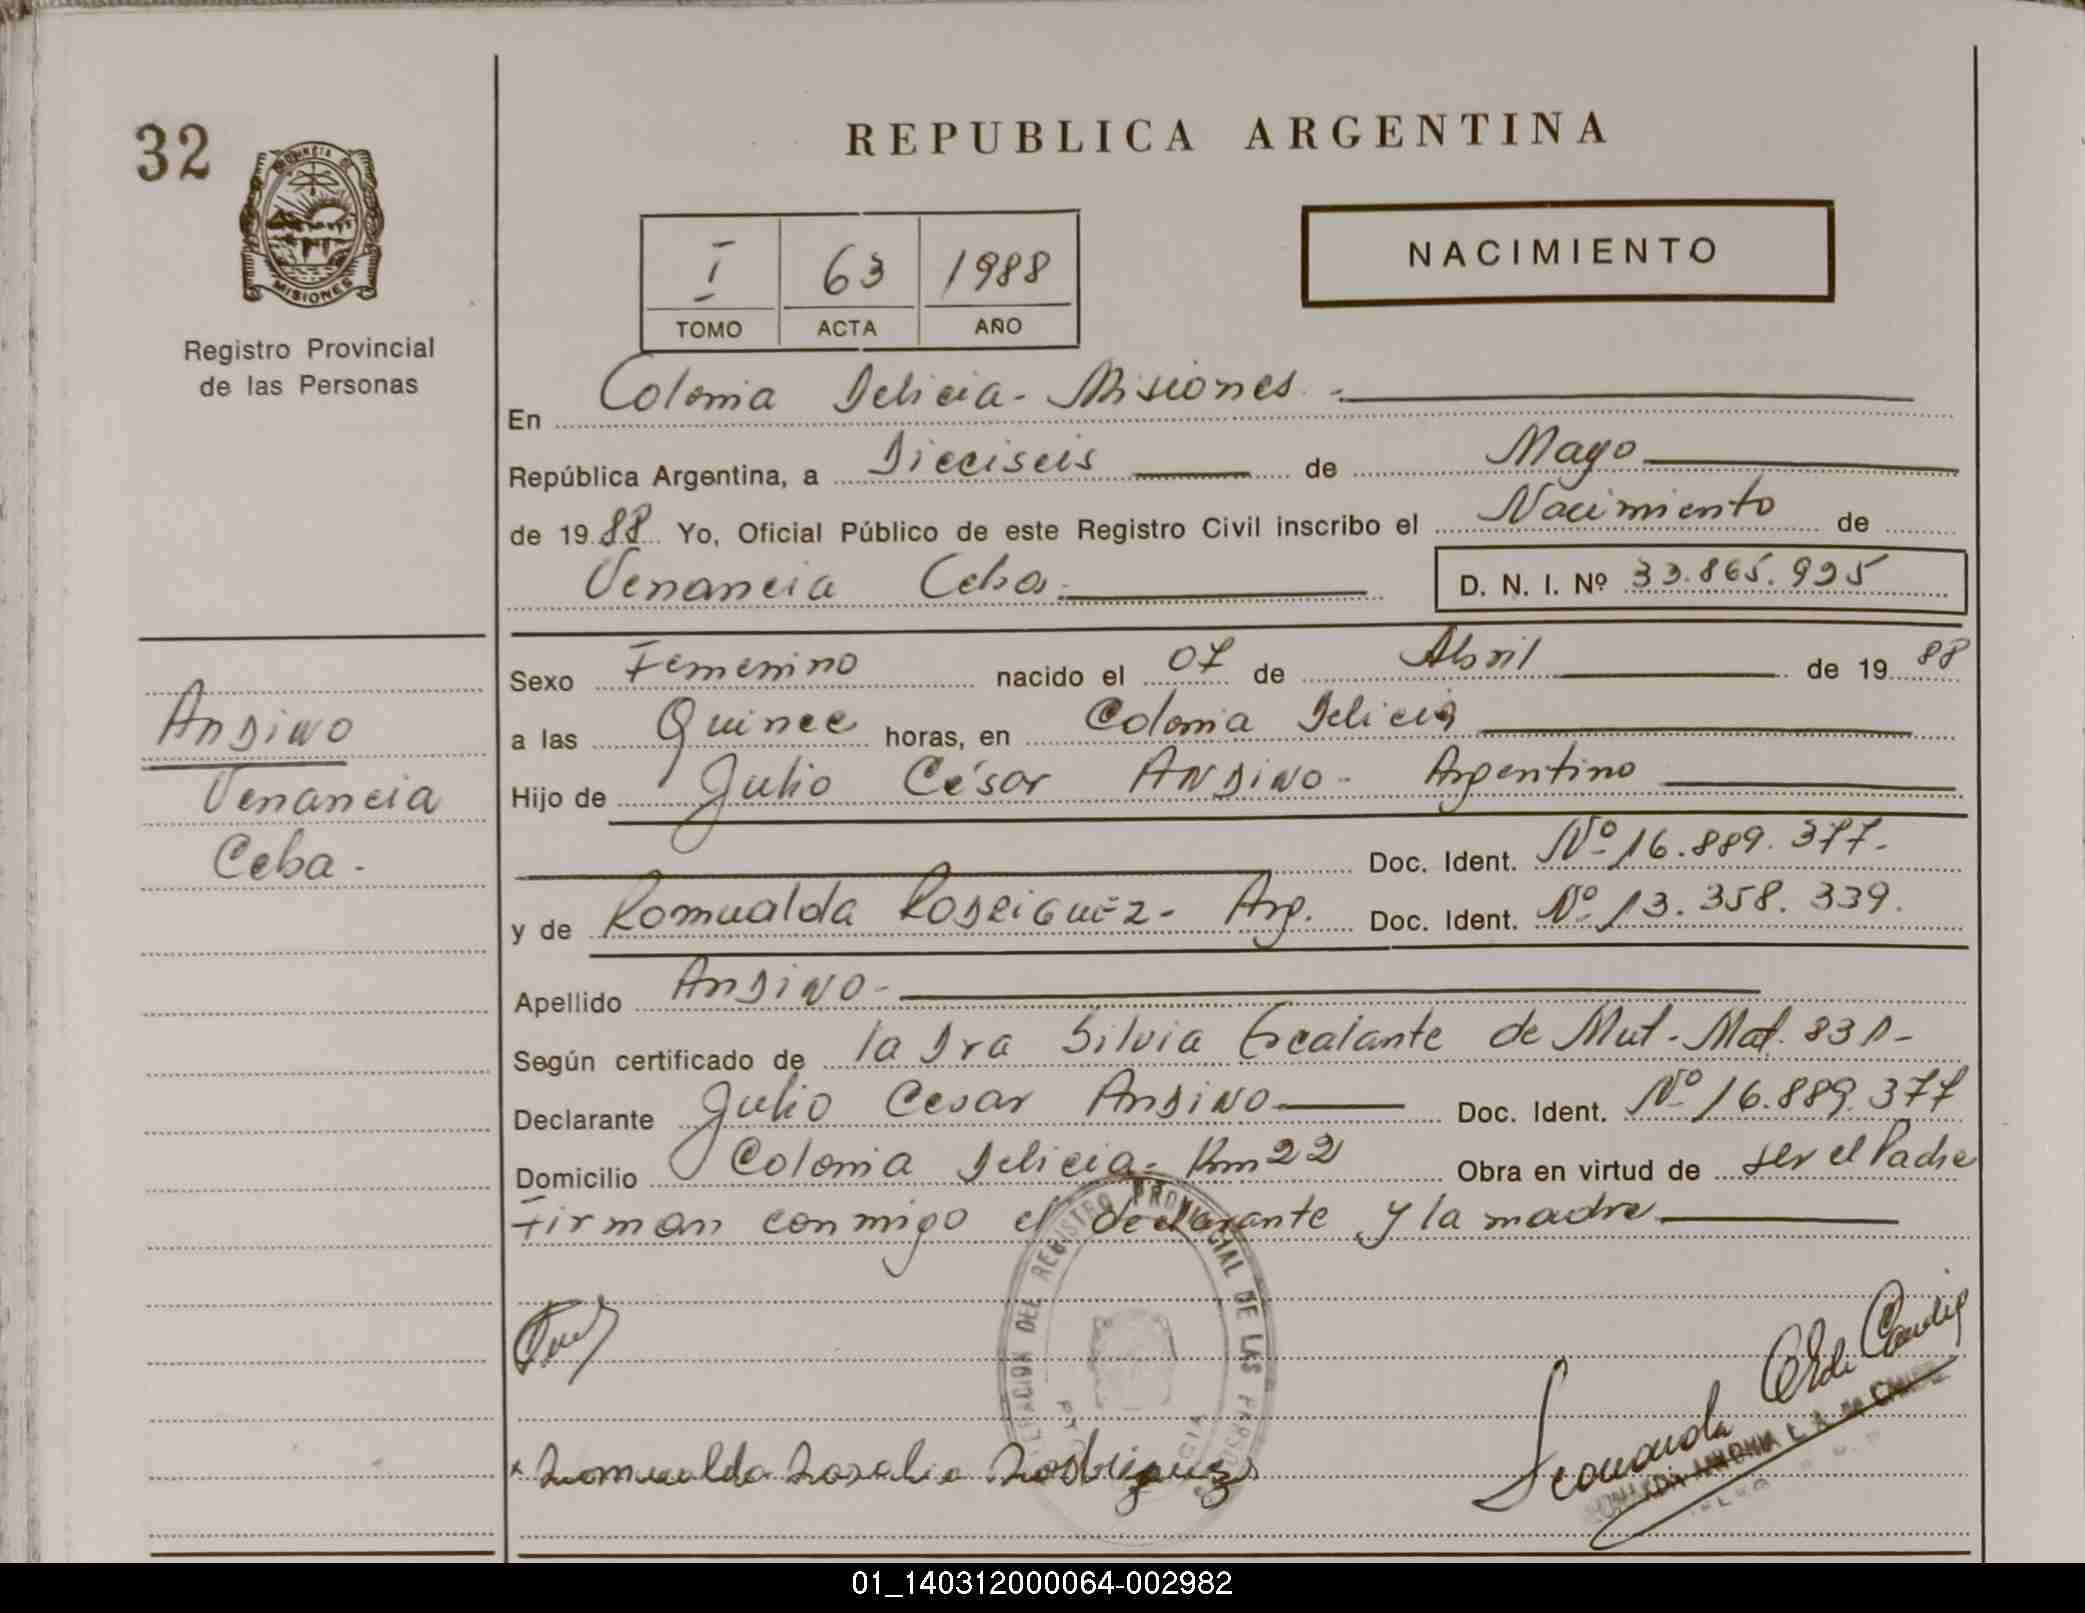 32
PROVINCIA DE
MISIONES
Registro Provincial
de las Personas
REPUBLICA ARGENTINA
NACIMIENTO
I 63 1988
TOMO ACTA AÑO
En Colonia Delicia - Misiones.-
República Argentina, a Dieciseis de Mayo
de 1988. Yo, Oficial Público de este Registro Civil inscribo el Nacimiento de
Venancia Ceba. D. N. I. Nº 33.865.995
Sexo Femenino nacido el 07 de Abril de 19 88
a las Quince horas, en Colonia Delicia
Hijo de Julio César ANDINO - Argentino
Doc. Ident. Nº 16.889.377.-
y de Romualda RODRIGUEZ - Arg. Doc. Ident. Nº 13.358.339.
Apellido ANDINO-
Según certificado de la Dra Silvia Escalante de Mut - Mat. 831-
Declarante Julio Cesar ANDINO Doc. Ident. Nº 16.889.377
Domicilio Colonia Delicia - Km 22 Obra en virtud de ser el Padre
Firman conmigo el declarante y la madre
ANDINO
Venancia
Ceba -
DEL REGISTRO PROVINCIAL DE LAS PERSONAS
Romualda Rosalia Rodriguez
01_140312000064-002982